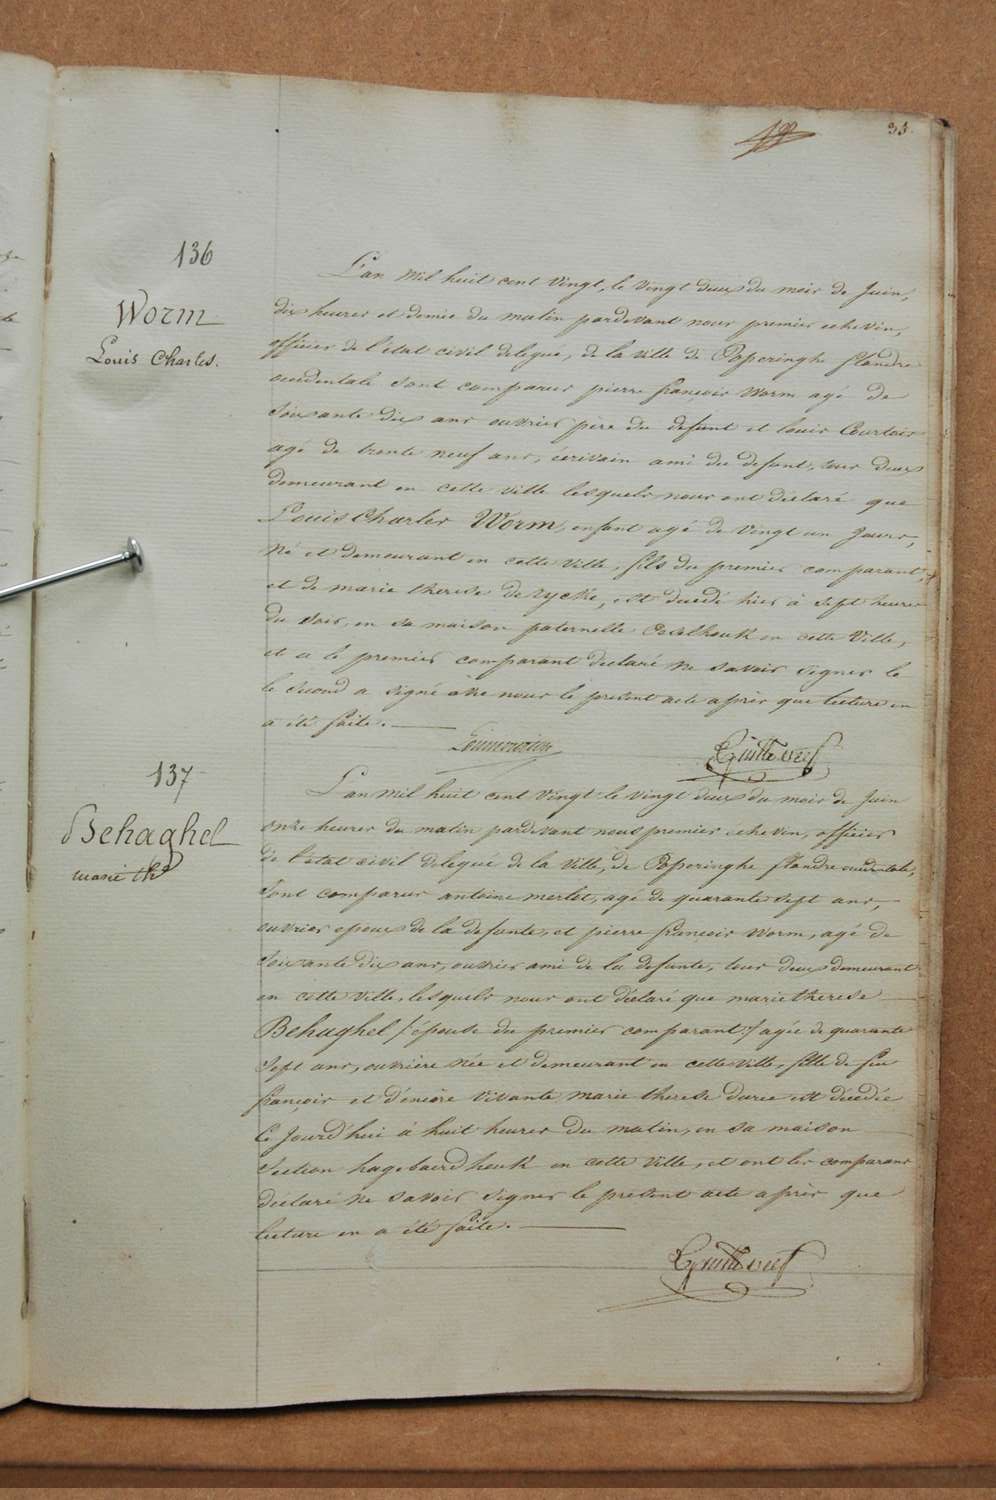 35.
136
Worm
Louis Charles.
L'an mil huit cent vingt, le vingt deux du mois de Juin,
dix heures et demie du matin pardevant nous premier echevin,
officier de l'état civil delegué, de la ville de Poperinghe flandre
occidentale sont comparus pierre françois Worm agé de
soixante dix ans ouvrier père du defunt et louis Courtois
agé de trente neuf ans, écrivain ami du defunt, tous deux
demeurant en cette ville lesquels nous ont déclaré que
Louis Charles Worm, enfant agé de vingt un jours,
né et demeurant en cette ville, fils du premier comparant,
et de marie therese Derycke, est decedé hier à sept heures
du soir, en sa maison paternelle en cette ville,
et a le premier comparant declaré ne savoir signer le
le second a signé avec nous le present acte après que lecture en
a été faite.
137
Behaghel
marie th
L'an mil huit cent vingt le vingt deux du mois de Juin
onze heures du matin pardevant nous premier echevin, officier
de l'état civil delegué de la ville, de Poperinghe flandre occidentale,
sont comparus antoine merlet, agé de quarante sept ans,
ouvrier epoux de la defunte, et pierre françois Worm, agé de
soixante dix ans, ouvrier ami de la defunte, tous deux demeurant
en cette ville, lesquels nous ont déclaré que marie therese
Behaghel /:épouse du premier comparant:/ agée de quarante
sept ans, ouvrière née et demeurant en cette ville, fille de feu
françois et d'encore vivante marie therese est décédée
ce Jourd'hui à huit heures du matin, en sa maison
section hagebaerdhouk en cette ville, et ont les comparans
declaré ne savoir signer le présent acte après que
lecture en a été faite.